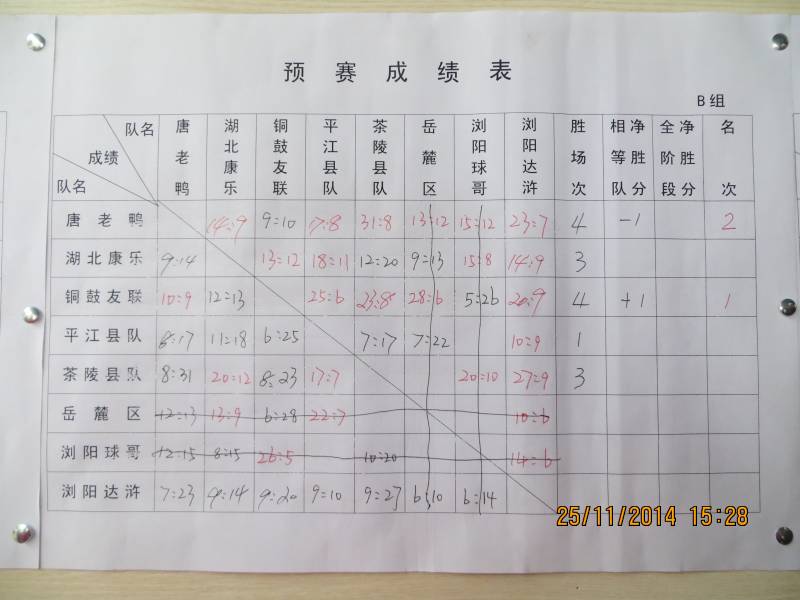 预赛成绩表
B组
队名 成绩 队名 唐老鸭 湖北康乐 铜鼓友联 平江县队 茶陵县队 岳麓区 浏阳球哥 浏阳达浒 胜场次 相等队净胜分 全阶段净胜分 名次
唐老鸭 14:9 9:10 17:8 31:8 13:12 15:12 23:7 4 -1 2
湖北康乐 9:14 13:12 18:11 12:20 9:13 15:8 14:9 3
铜鼓友联 10:9 12:13 25:6 23:8 28:6 5:26 20:9 4 +1 1
平江县队 8:17 11:18 6:25 7:17 7:22 10:9 1
茶陵县队 8:31 20:12 8:23 17:7 20:10 27:9 3
岳麓区 12:13 13:9 6:28 22:7 10:6
浏阳球哥 12:15 8:15 26:5 10:20 14:6
浏阳达浒 7:23 9:14 9:20 9:10 9:27 6:10 6:14
25/11/2014 15:28